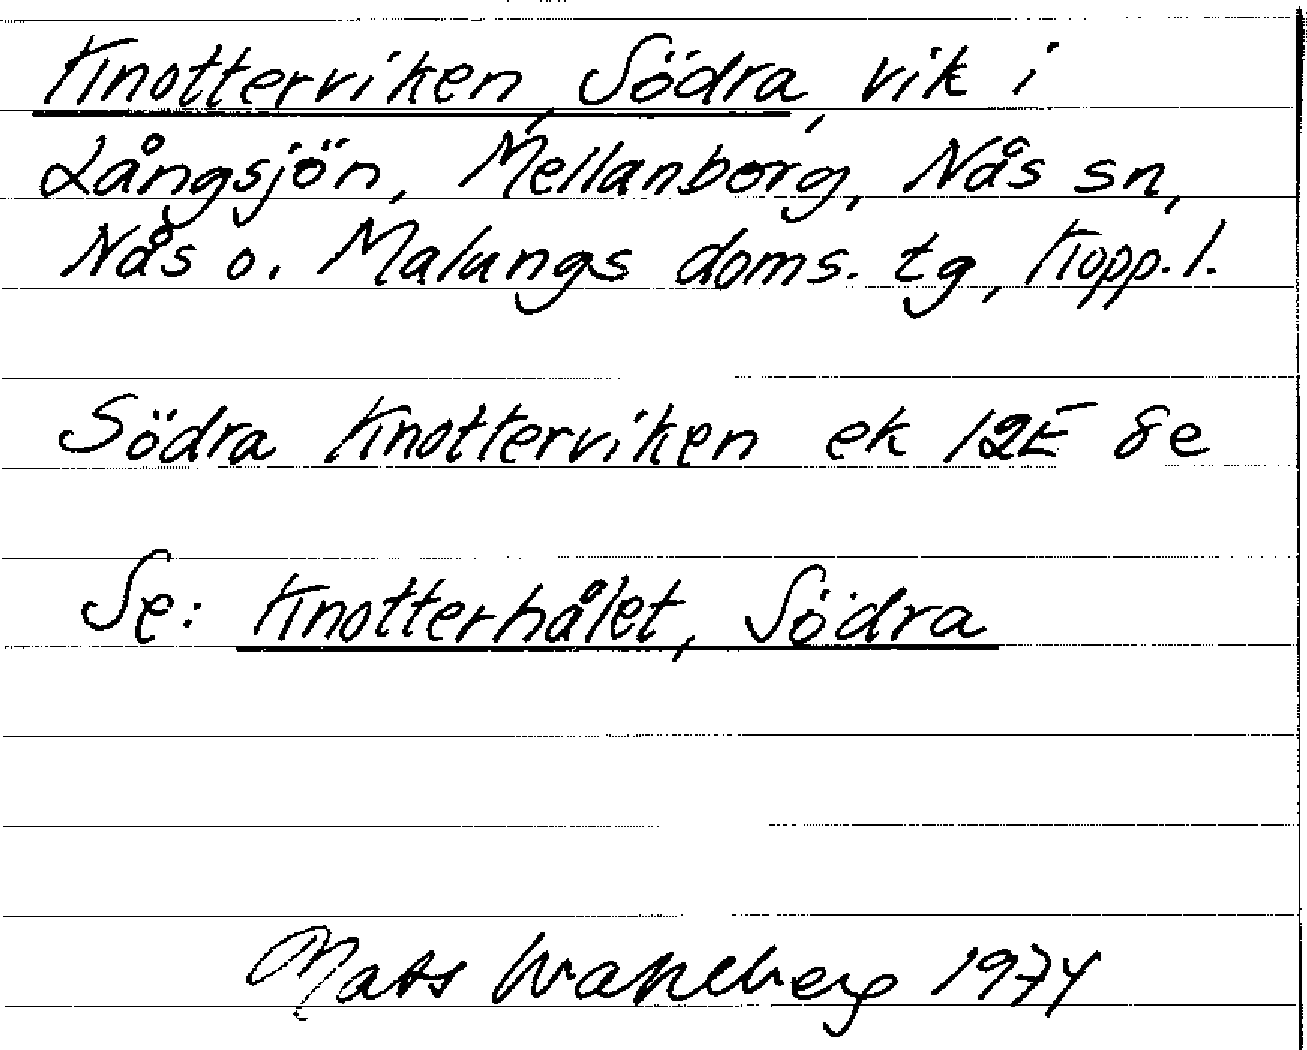 Knotterviken, Södra, vik i
Långsjön, Mellanborg, Nås sn,
Nås o. Malungs doms. tg, Kopp. l.
Södra Knotterviken ek 12E 8e
Se: Knotterhålet, Södra
Mats Wahlberg 1974